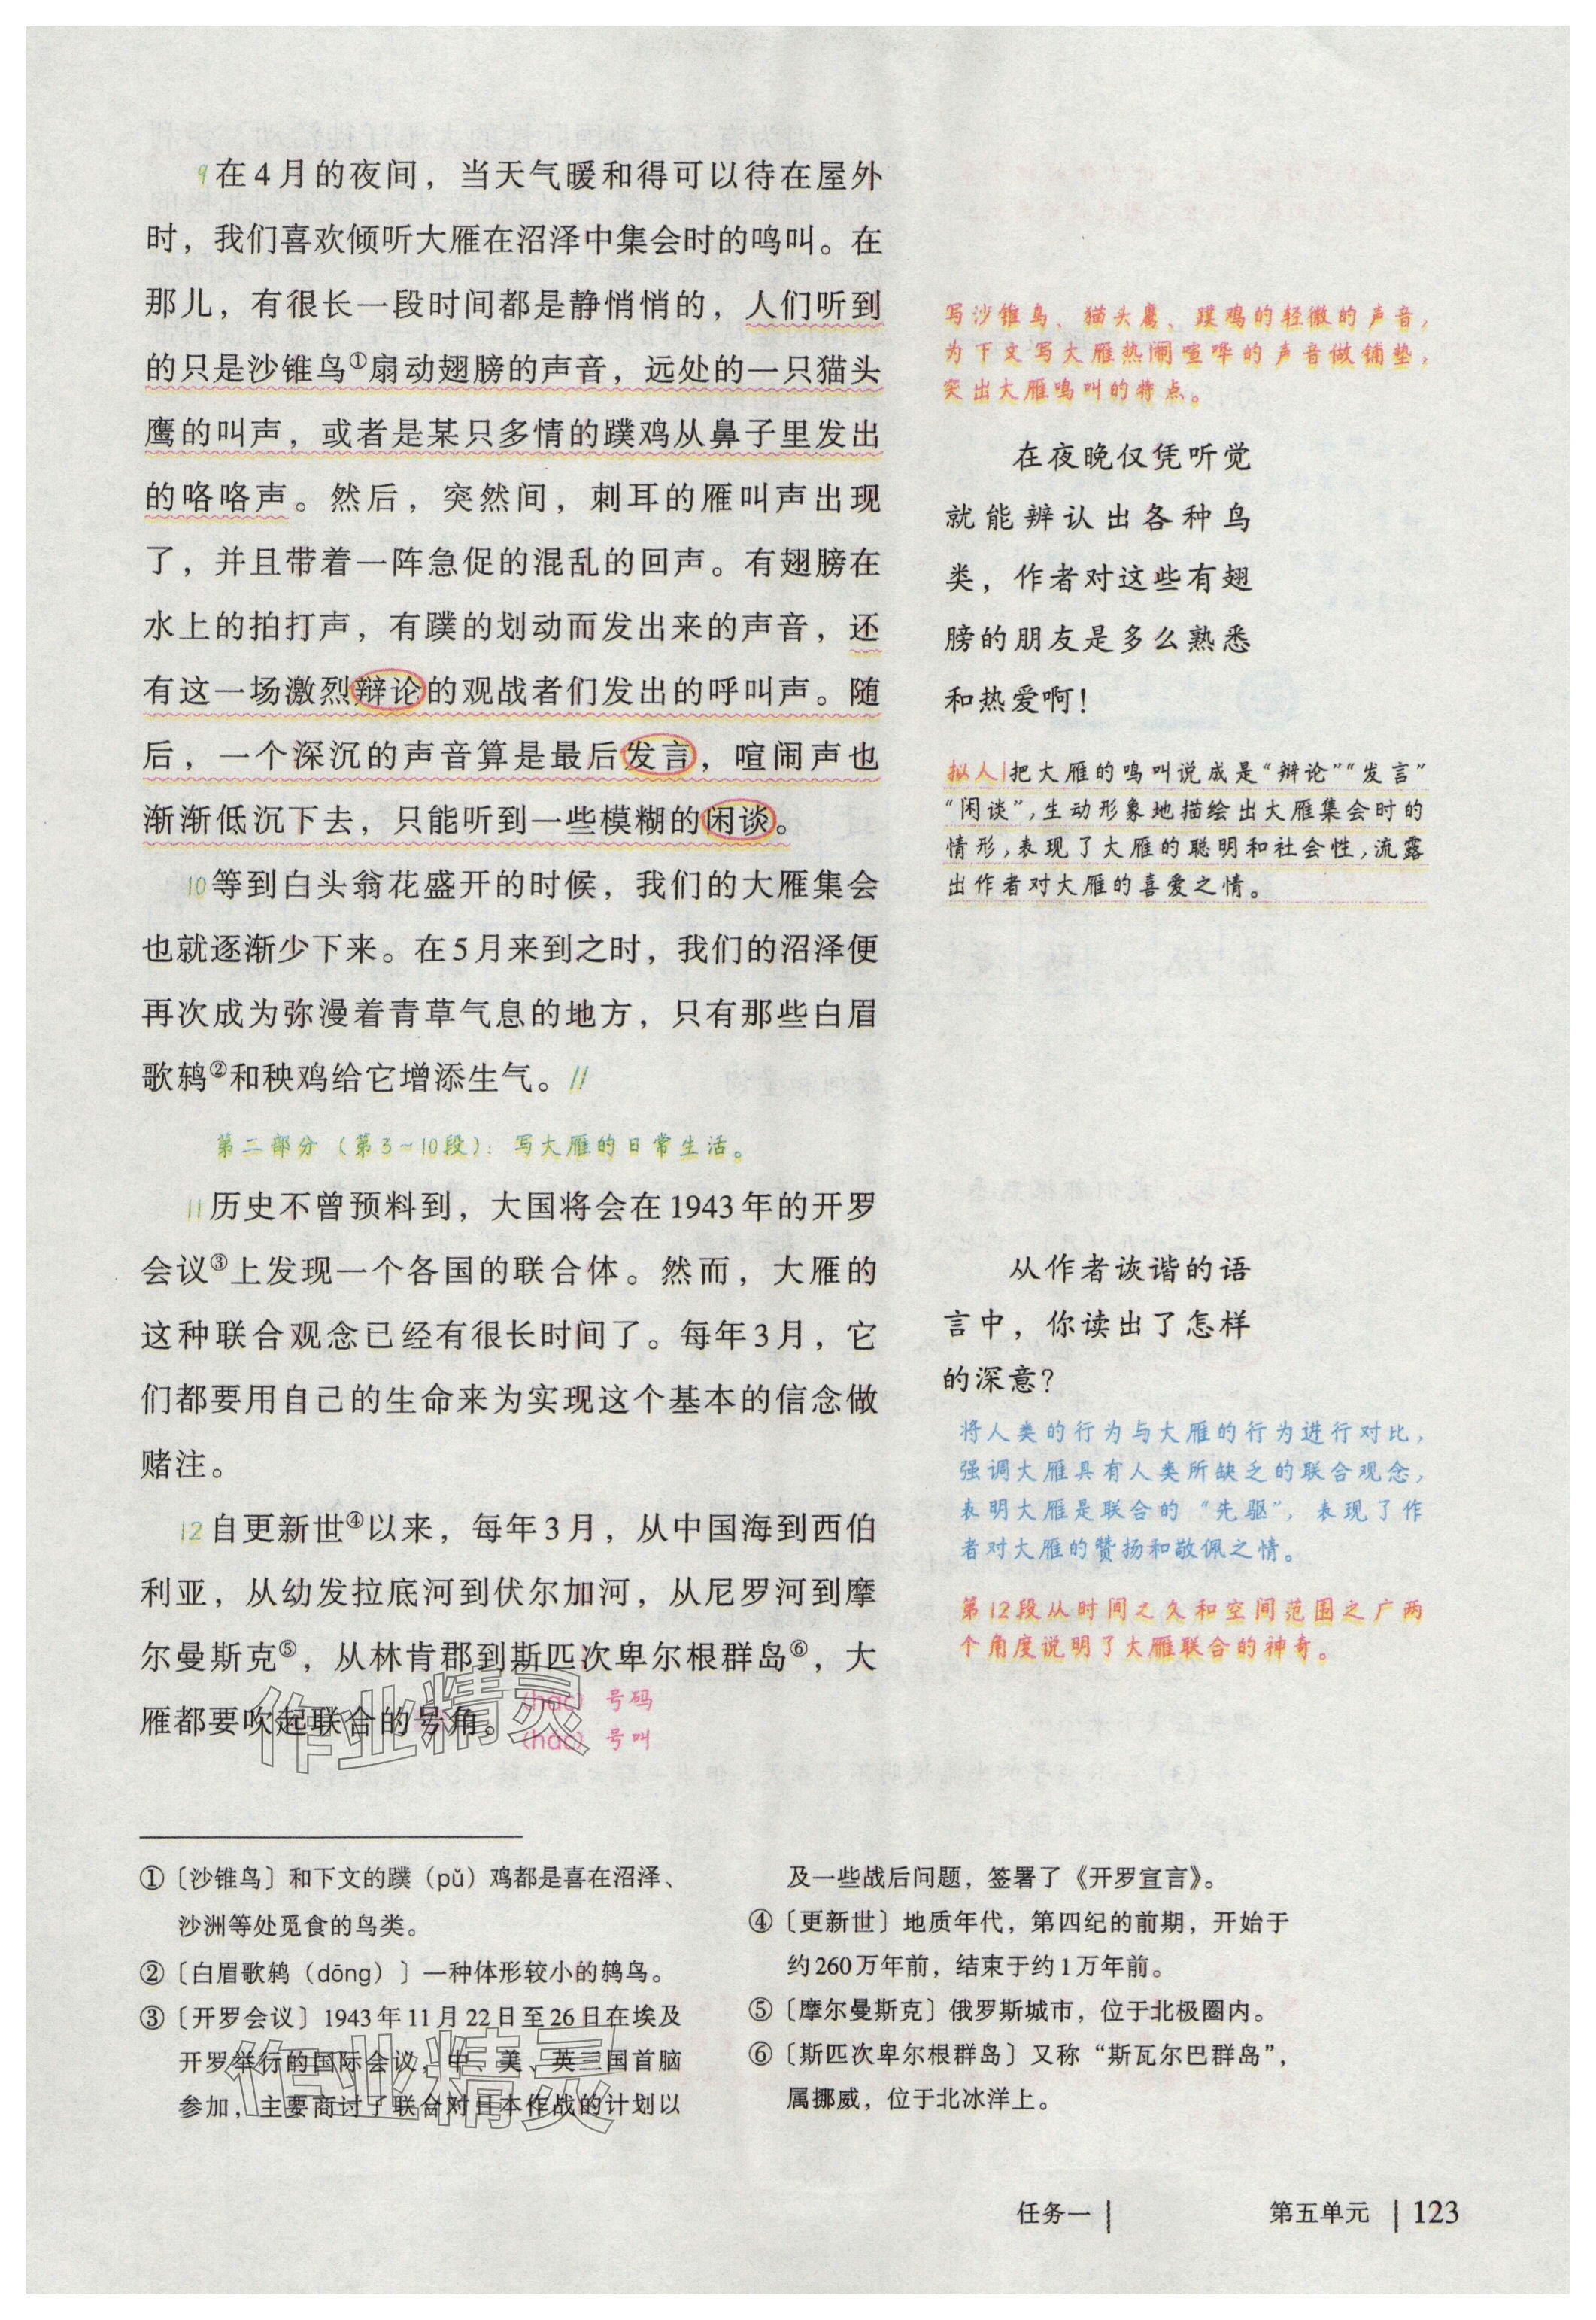 9在4月的夜间，当天气暖和得可以待在屋外
时，我们喜欢倾听大雁在沼泽中集会时的鸣叫。在
那儿，有很长一段时间都是静悄悄的，人们听到
的只是沙锥鸟①扇动翅膀的声音，远处的一只猫头
鹰的叫声，或者是某只多情的蹼鸡从鼻子里发出
的咯咯声。然后，突然间，刺耳的雁叫声出现
了，并且带着一阵急促的混乱的回声。有翅膀在
水上的拍打声，有蹼的划动而发出来的声音，还
有这一场激烈辩论的观战者们发出的呼叫声。随
后，一个深沉的声音算是最后发言，喧闹声也
渐渐低沉下去，只能听到一些模糊的闲谈。
10等到白头翁花盛开的时候，我们的大雁集会
也就逐渐少下来。在5月来到之时，我们的沼泽便
再次成为弥漫着青草气息的地方，只有那些白眉
歌鸫②和秧鸡给它增添生气。//
第二部分（第3~10段）：写大雁的日常生活。
11历史不曾预料到，大国将会在1943年的开罗
会议③上发现一个各国的联合体。然而，大雁的
这种联合观念已经有很长时间了。每年3月，它
们都要用自己的生命来为实现这个基本的信念做
赌注。
12自更新世④以来，每年3月，从中国海到西伯
利亚，从幼发拉底河到伏尔加河，从尼罗河到摩
尔曼斯克⑤，从林肯郡到斯匹次卑尔根群岛⑥，大
雁都要吹起联合的号角。
(hào) 号码
(háo) 号叫
作业精灵
写沙锥鸟、猫头鹰、蹼鸡的轻微的声音，
为下文写大雁热闹喧哗的声音做铺垫，
突出大雁鸣叫的特点。
在夜晚仅凭听觉
就能辨认出各种鸟
类，作者对这些有翅
膀的朋友是多么熟悉
和热爱啊！
拟人|把大雁的鸣叫说成是“辩论”“发言”
“闲谈”，生动形象地描绘出大雁集会时的
情形，表现了大雁的聪明和社会性，流露
出作者对大雁的喜爱之情。
从作者诙谐的语
言中，你读出了怎样
的深意？
将人类的行为与大雁的行为进行对比，
强调大雁具有人类所缺乏的联合观念，
表明大雁是联合的“先驱”，表现了作
者对大雁的赞扬和敬佩之情。
第12段从时间之久和空间范围之广两
个角度说明了大雁联合的神奇。
①〔沙锥鸟〕和下文的蹼（pǔ）鸡都是喜在沼泽、
沙洲等处觅食的鸟类。
②〔白眉歌鸫（dōng）〕一种体形较小的鸫鸟。
③〔开罗会议〕1943年11月22日至26日在埃及
开罗举行的国际会议，中、美、英三国首脑
参加，主要商讨了联合对日本作战的计划以
作业精灵
及一些战后问题，签署了《开罗宣言》。
④〔更新世〕地质年代，第四纪的前期，开始于
约260万年前，结束于约1万年前。
⑤〔摩尔曼斯克〕俄罗斯城市，位于北极圈内。
⑥〔斯匹次卑尔根群岛〕又称“斯瓦尔巴群岛”，
属挪威，位于北冰洋上。
任务一| 第五单元 |123